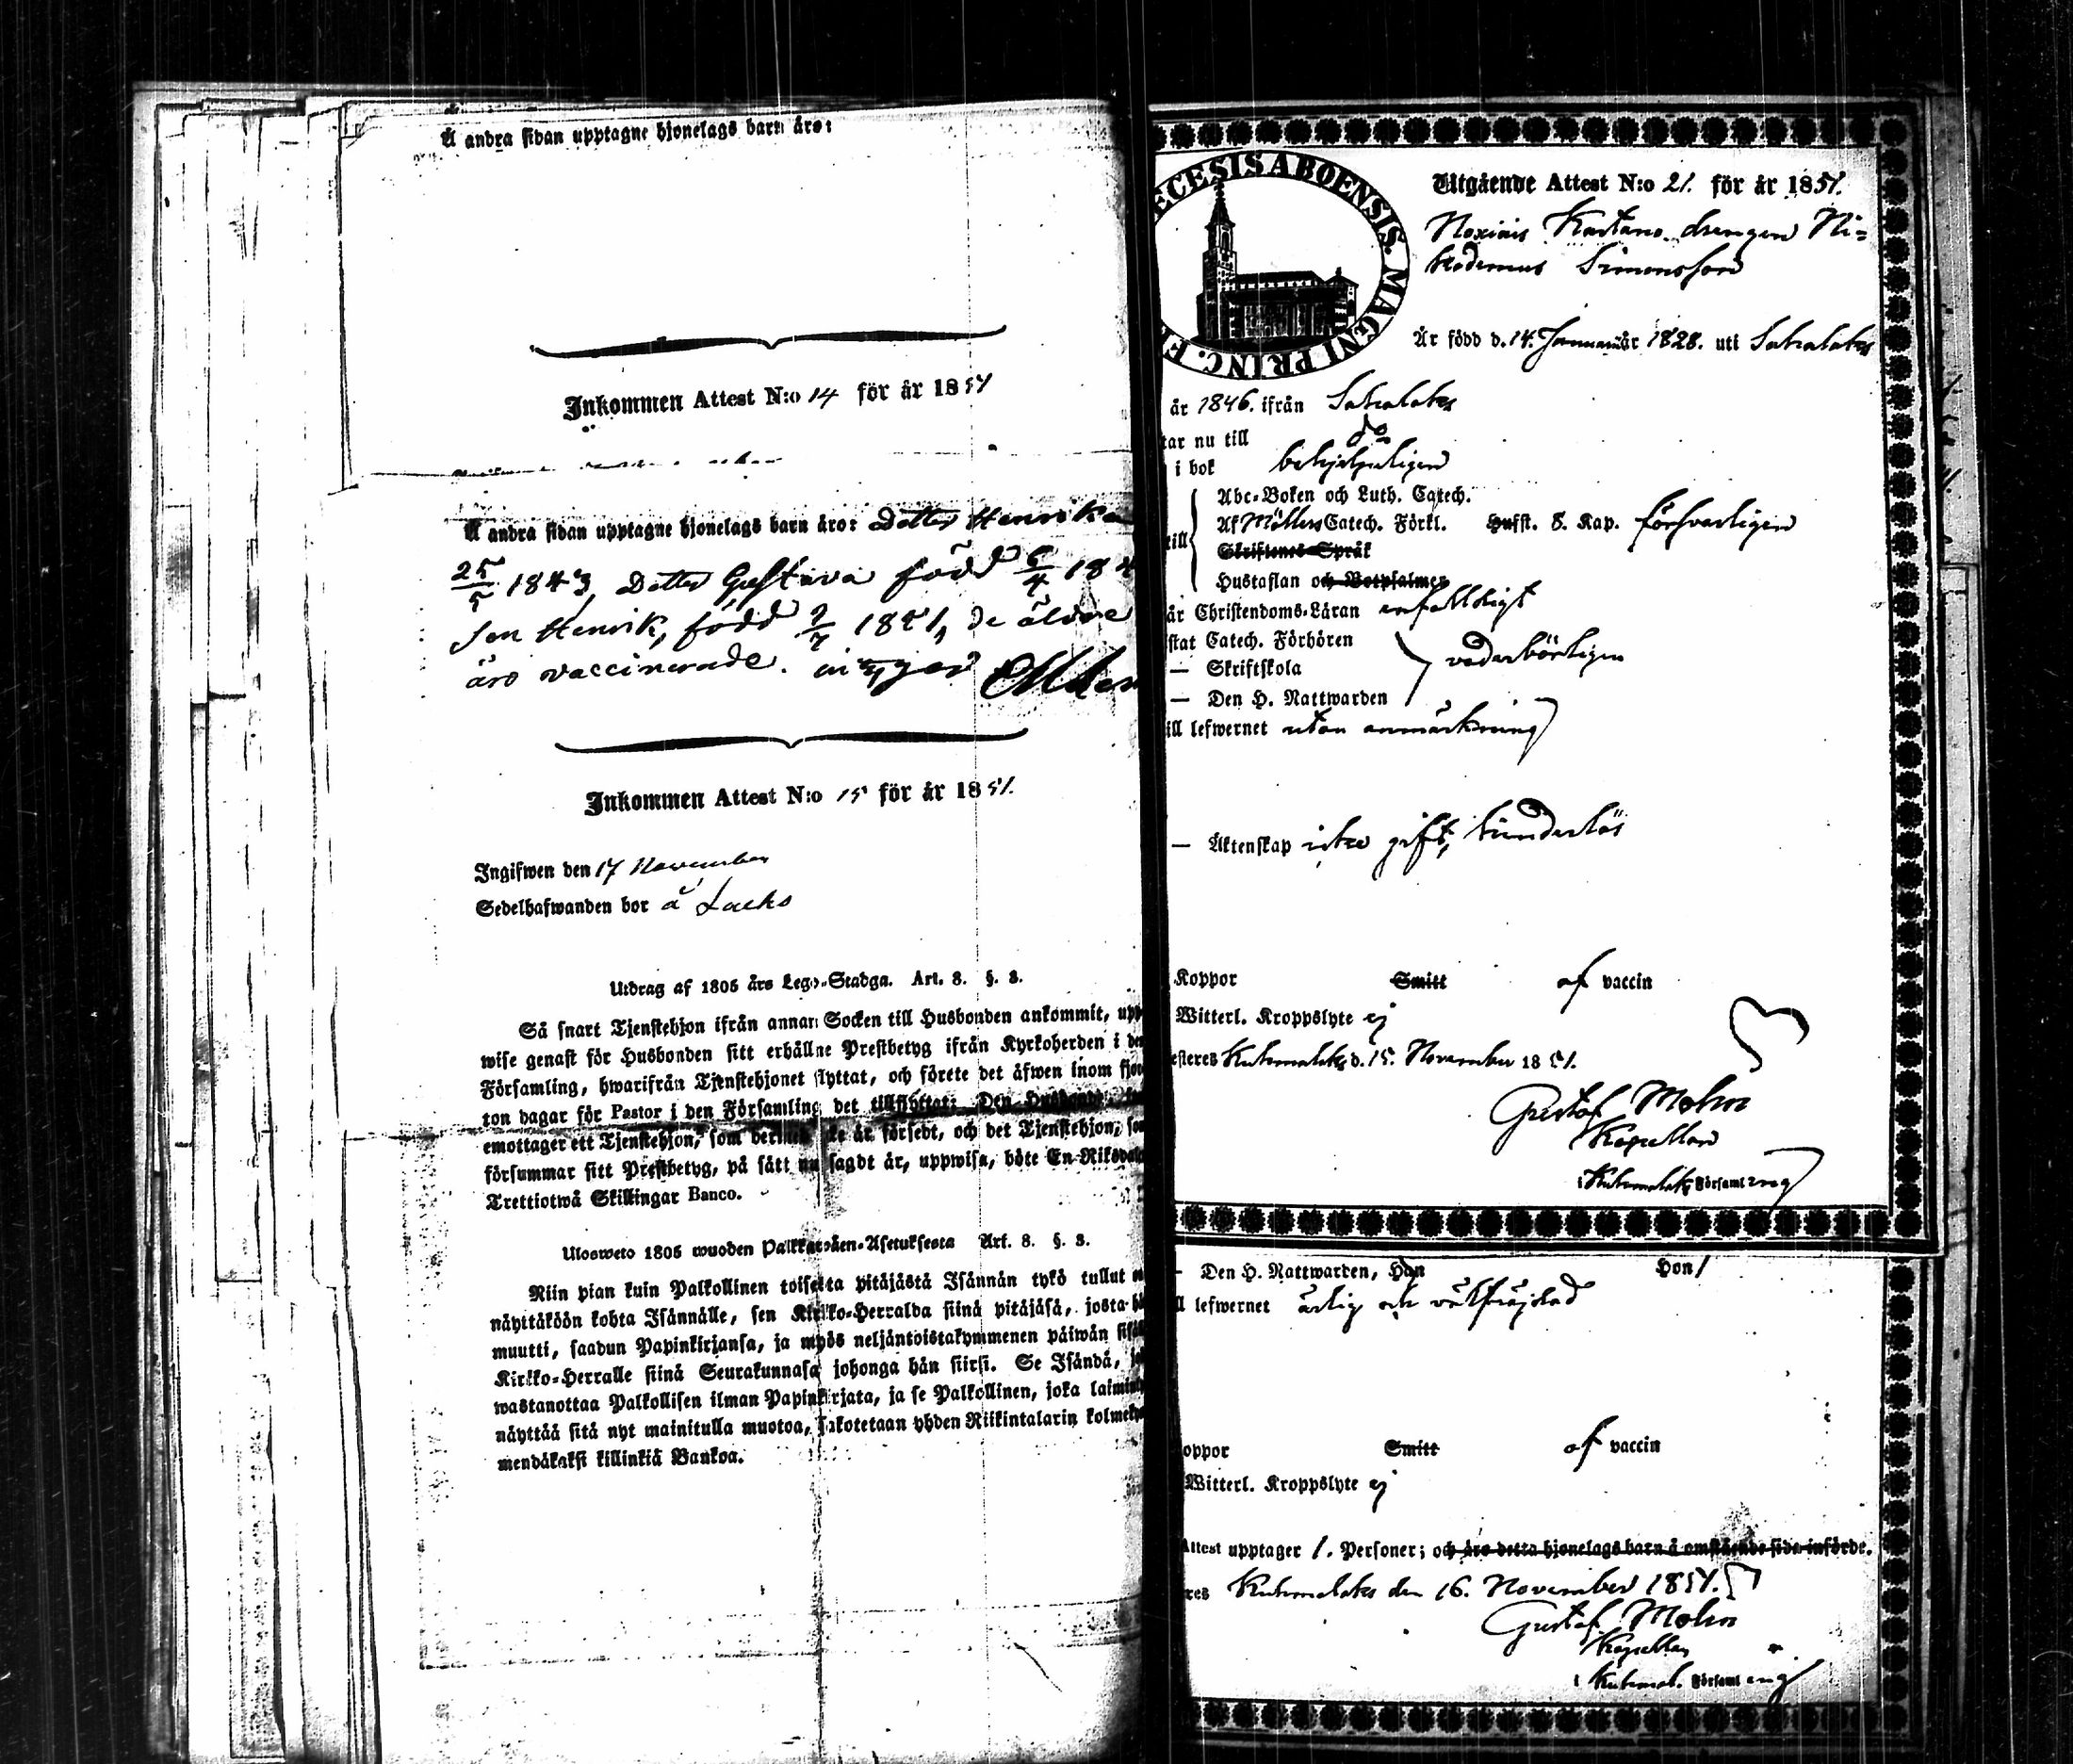 Å andra sidan upptagne hjonelags barn äro:
Inkommen Attest N:o 14 för år 1851
Å andra sidan upptagne hjonelags barn äro: Dotter Henrika
25/5 1843, Dotter Gustava född 6/4 184
Son Henrik, född 2/7 1851, de äldre
äro vaccinerade. intygar
Inkommen Attest N:o 15 för år 1851.
Ingifwen den 17 November
Sedelhafwanden bor å Laeks
Utdrag af 1805 års Lego-Stadga. Art. 8. §. 8.
Så snart Tjenstehjon ifrån annan Socken till Husbonden ankommit, upp
wise genast för Husbonden sitt erhållne Prestbetyg ifrån Kyrkoherden i den
Församling, hwarifrån Tjenstehjonet flyttat, och förete det äfwen inom fjor
ton dagar för Pastor i den Församling det tillflyttat: Den Husbonde,
emottager ett Tjenstehjon, som dermed icke är försedt, och det Tjenstehjon, som
försummar sitt Prestbetyg, på sätt nu sagdt är, uppwisa, böte En Riksdaler
Trettiotwå Skillingar Banco.
Ulosweto 1805 wuoden Palkkawäen-Asetuksesta Art. 8. §. 8.
Niin pian kuin Palkollinen toisesta pitäjästä Isännän tykö tullut on
näyttäköön kohta Isännälle, sen Kirkko-Herralda siinä pitäjäsä, josta hän
muutti, saadun Papinkirjansa, ja myös neljäntoistakymmenen päiwän sisällä
Kirkko-Herralle siinä Seurakunnasa johonga hän siirsi. Se Isändä, joka
wastanottaa Palkollisen ilman Papinkirjata, ja se Palkollinen, joka laiminlyö
näyttää sitä nyt mainitulla muotoa, sakotetaan yhden Riikintalarin kolmekym
mendäkaksi killinkiä Bankoa.
ŒCESIS ABOENSIS. MAGNI PRINC. F
Utgående Attest N:o 21. för år 1851.
Noxiais Kartano drengen Ni=
kodemus Simonsson
Är född d. 14. Januarii är 1828. uti Satalaks
år 1846. ifrån Satalaks
tar nu till do
i bok behjelpeligen
Abc-Boken och Luth. Catech.
till Af Möllers Catech. Förkl. Hufst. 8. Kap. försvarligen
Skriftenes Språk
Hustaflan och Botpsalmer
år Christendoms-Läran enfalldigt
stat Catech. Förhören
— Skriftskola vederbörligen
— Den H. Nattwarden
ill lefwernet utan anmärkning
— Äktenskap icke gift, hinderlös
Koppor Smitt af vaccin
Witterl. Kroppslyte ej
esteres Kuhmalaks d. 15. November 1851.
Gustaf Molin
Kapellan
i Kuhmalaks Församling
— Den H. Nattwarden, Han Hon
ll lefwernet ärlig och välfräjdad
oppor Smitt af vaccin
Witterl. Kroppslyte ej
Attest upptager 1. Personer; och äro detta hjonelags barn å omstående sida införde.
res Kuhmalaks den 16. November 1851.
Gustaf Molin
Kapellan
i Kuhmal. Församling